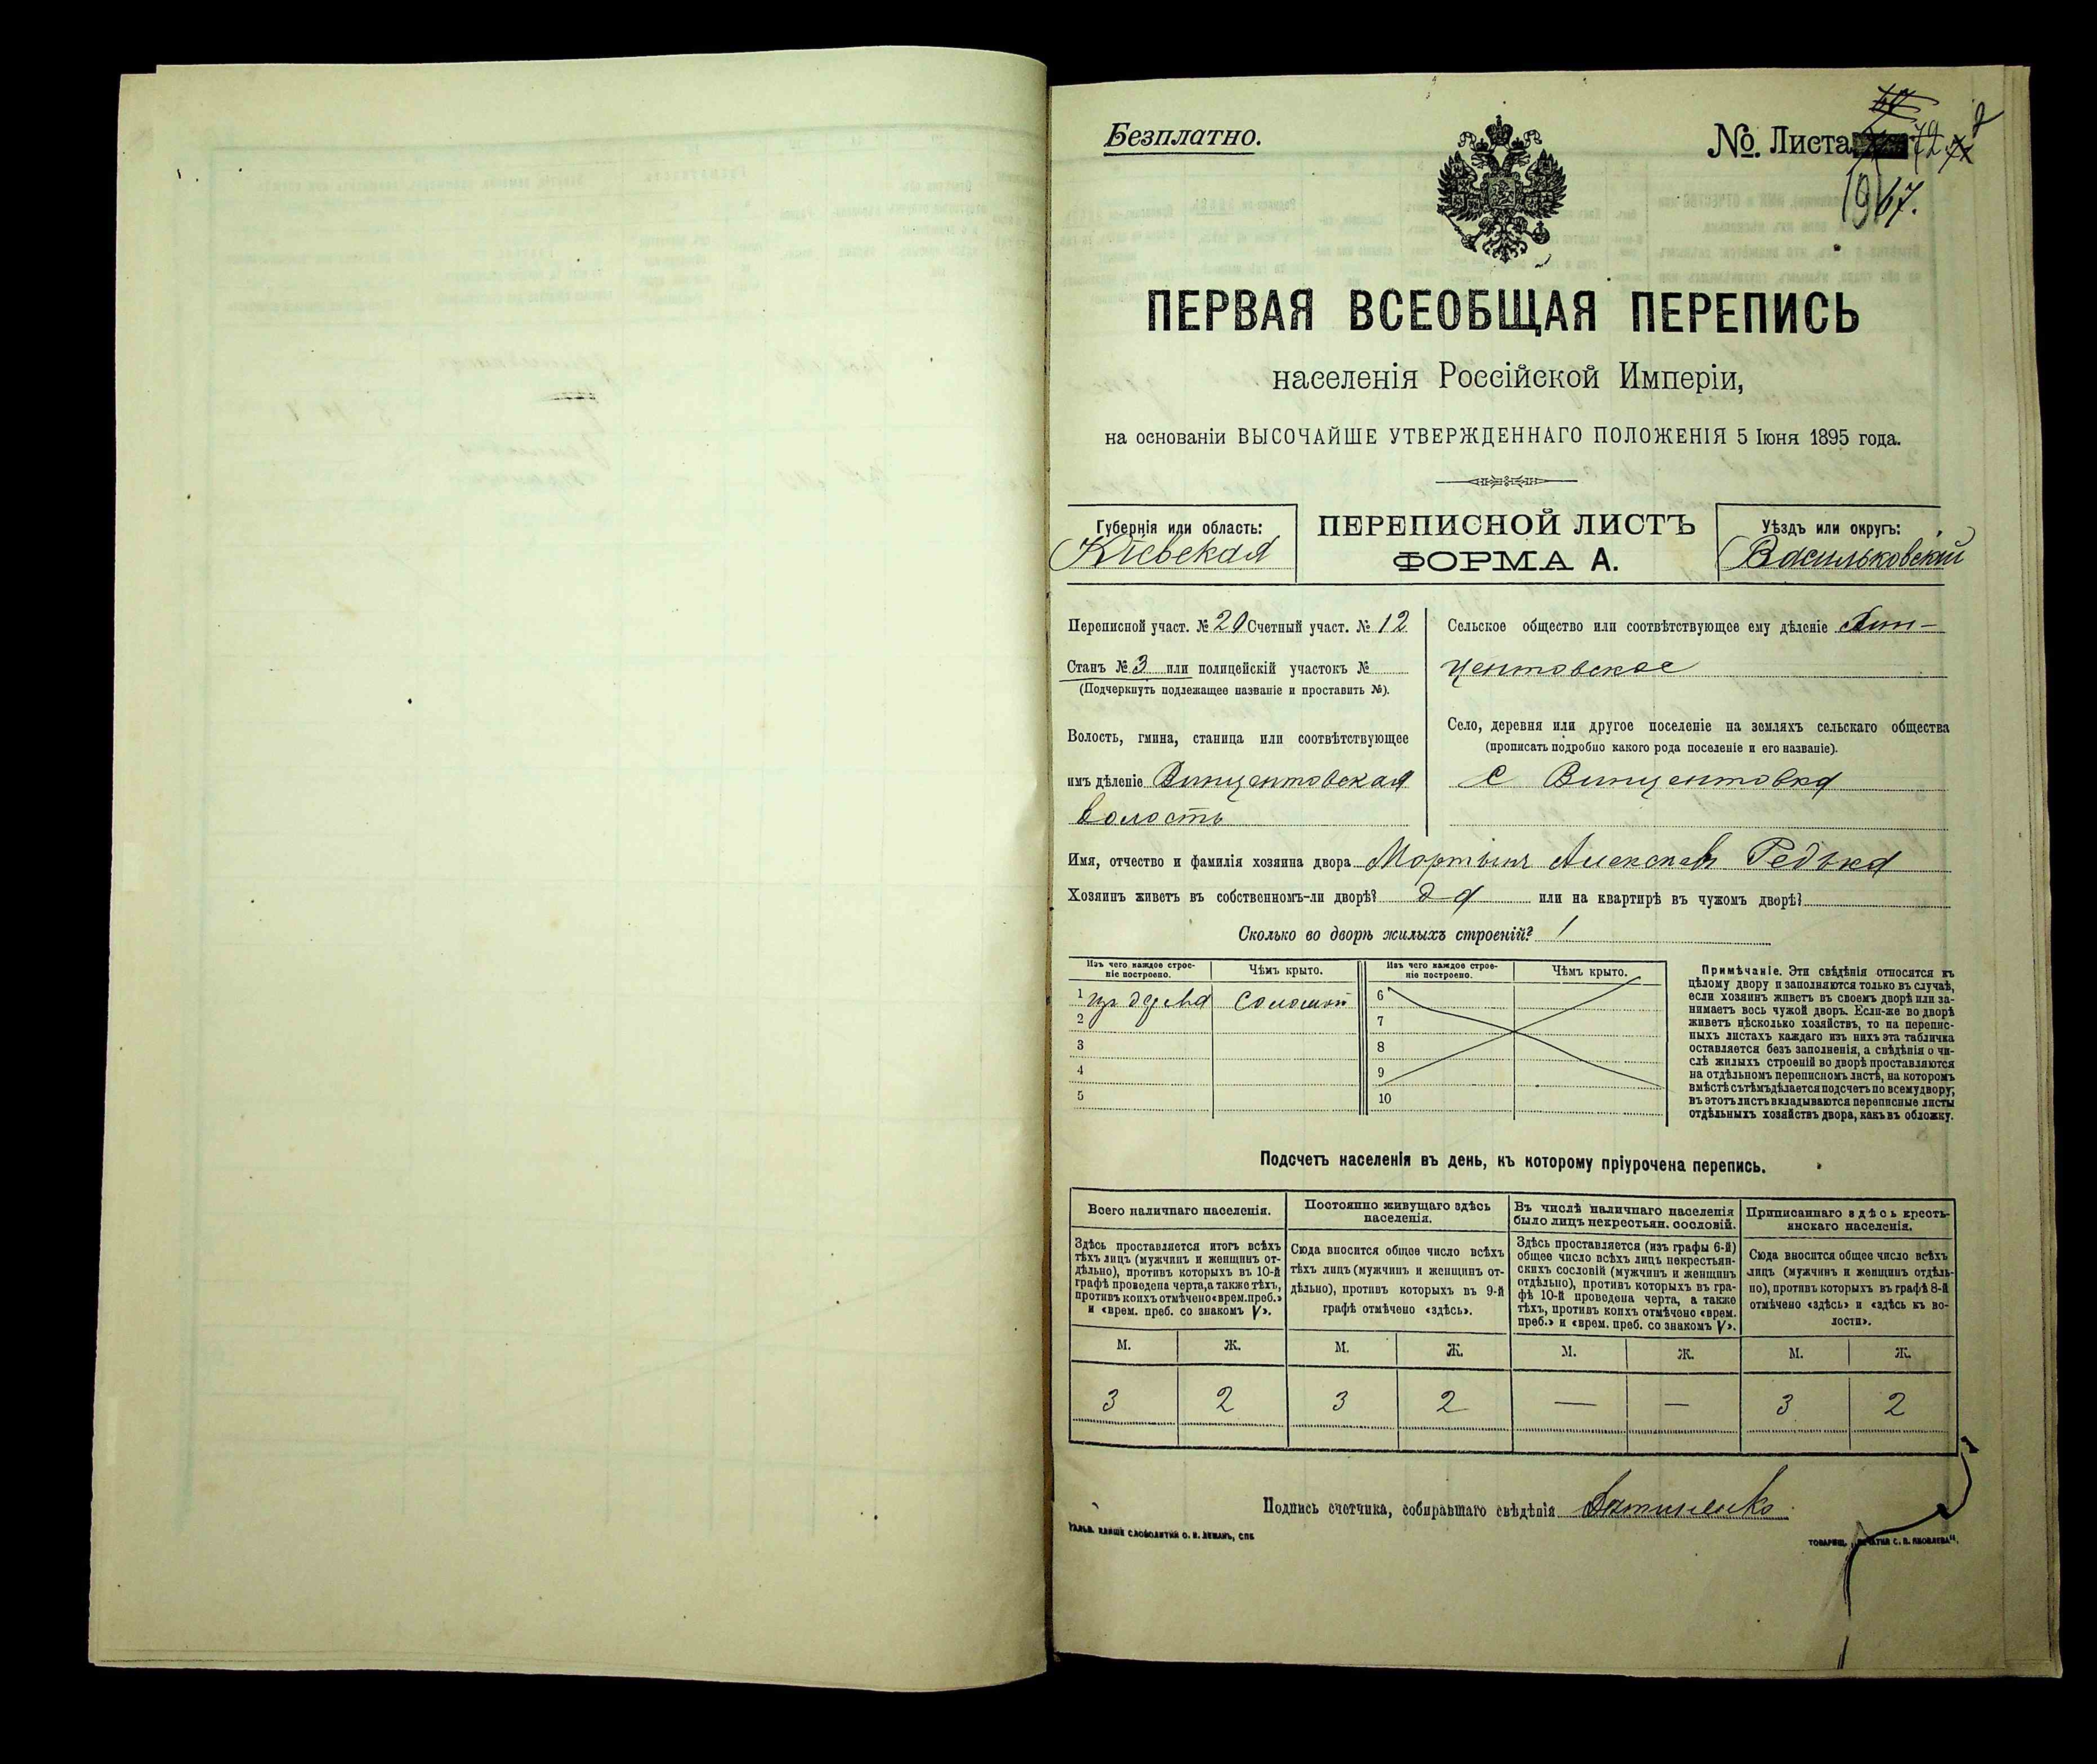 Безплатно.
№ Листа 72
19 67.
ПЕРВАЯ ВСЕОБЩАЯ ПЕРЕПИСЬ
населенія Россійской Имперіи,
на основаніи ВЫСОЧАЙШЕ УТВЕРЖДЕННАГО ПОЛОЖЕНІЯ 5 Іюня 1895 года.
Губернія или область:
Кіевская
ПЕРЕПИСНОЙ ЛИСТЪ
ФОРМА А.
Уѣздъ или округъ:
Васильковскій
Переписной участ. № 20 Счетный участ. № 12
Станъ № 3 или полицейскій участокъ №
(Подчеркнуть подлежащее названіе и проставить №).
Волость, гмина, станица или соотвѣтствующее
имъ дѣленіе Винцентовская
волость
Сельское общество или соотвѣтствующее ему дѣленіе Вин-
центовское
Село, деревня или другое поселеніе на земляхъ сельскаго общества
(прописать подробно какого рода поселеніе и его названіе).
с Винцентовка
Имя, отчество и фамилія хозяина двора Мартынъ Алексѣевъ Редька
Хозяинъ живетъ въ собственномъ-ли дворѣ? да или на квартирѣ въ чужомъ дворѣ?
Сколько во дворѣ жилыхъ строеній? 1
Изъ чего каждое строе-
ніе построено.
Чѣмъ крыто.
Изъ чего каждое строе-
ніе построено.
Чѣмъ крыто.
1 изъ дерева соломой
2
3
4
5
6
7
8
9
10
Примѣчаніе. Эти свѣдѣнія относятся къ
цѣлому двору и заполняются только въ случаѣ,
если хозяинъ живетъ въ своемъ дворѣ или за-
нимаетъ весь чужой дворъ. Если-же во дворѣ
живетъ нѣсколько хозяйствъ, то на перепис-
ныхъ листахъ каждаго изъ нихъ эта табличка
оставляется безъ заполненія, а свѣдѣнія о чи-
слѣ жилыхъ строеній во дворѣ проставляются
на отдѣльномъ переписномъ листѣ, на которомъ
вмѣстѣ съ тѣмъ дѣлается подсчетъ по всему двору;
въ этотъ листъ вкладываются переписные листы
отдѣльныхъ хозяйствъ двора, какъ въ обложку.
Подсчетъ населенія въ день, къ которому пріурочена перепись.
Всего наличнаго населенія.
Здѣсь проставляется итогъ всѣхъ
тѣхъ лицъ (мужчинъ и женщинъ от-
дѣльно), противъ которыхъ въ 10-й
графѣ проведена черта, а также тѣхъ,
противъ коихъ отмѣчено «врем. преб.»
и «врем. преб. со знакомъ V».
Постоянно живущаго здѣсь
населенія.
Сюда вносится общее число всѣхъ
тѣхъ лицъ (мужчинъ и женщинъ от-
дѣльно), противъ которыхъ въ 9-й
графѣ отмѣчено «здѣсь».
Въ числѣ наличнаго населенія
было лицъ некрестьян. сословій.
Здѣсь проставляется (изъ графы 6-й)
общее число всѣхъ лицъ некрестьян-
скихъ сословій (мужчинъ и женщинъ
отдѣльно), противъ которыхъ въ гра-
фѣ 10-й проведена черта, а также
тѣхъ, противъ коихъ отмѣчено «врем.
преб.» и «врем. преб. со знакомъ V».
Приписаннаго здѣсь кресть-
янскаго населенія.
Сюда вносится общее число всѣхъ
лицъ (мужчинъ и женщинъ отдѣль-
но), противъ которыхъ въ графѣ 8-й
отмѣчено «здѣсь» и «здѣсь къ во-
лости».
М. Ж. М. Ж. М. Ж. М. Ж.
3 2 3 2 — — 3 2
Подпись счетчика, собиравшаго свѣдѣнія
ГАЛЬВ. КЛИШЕ СЛОВОЛИТНИ О. И. ЛЕМАНЪ, СПБ
ТОВАРИЩ. „ПЕЧАТНЯ С. П. ЯКОВЛЕВА“.